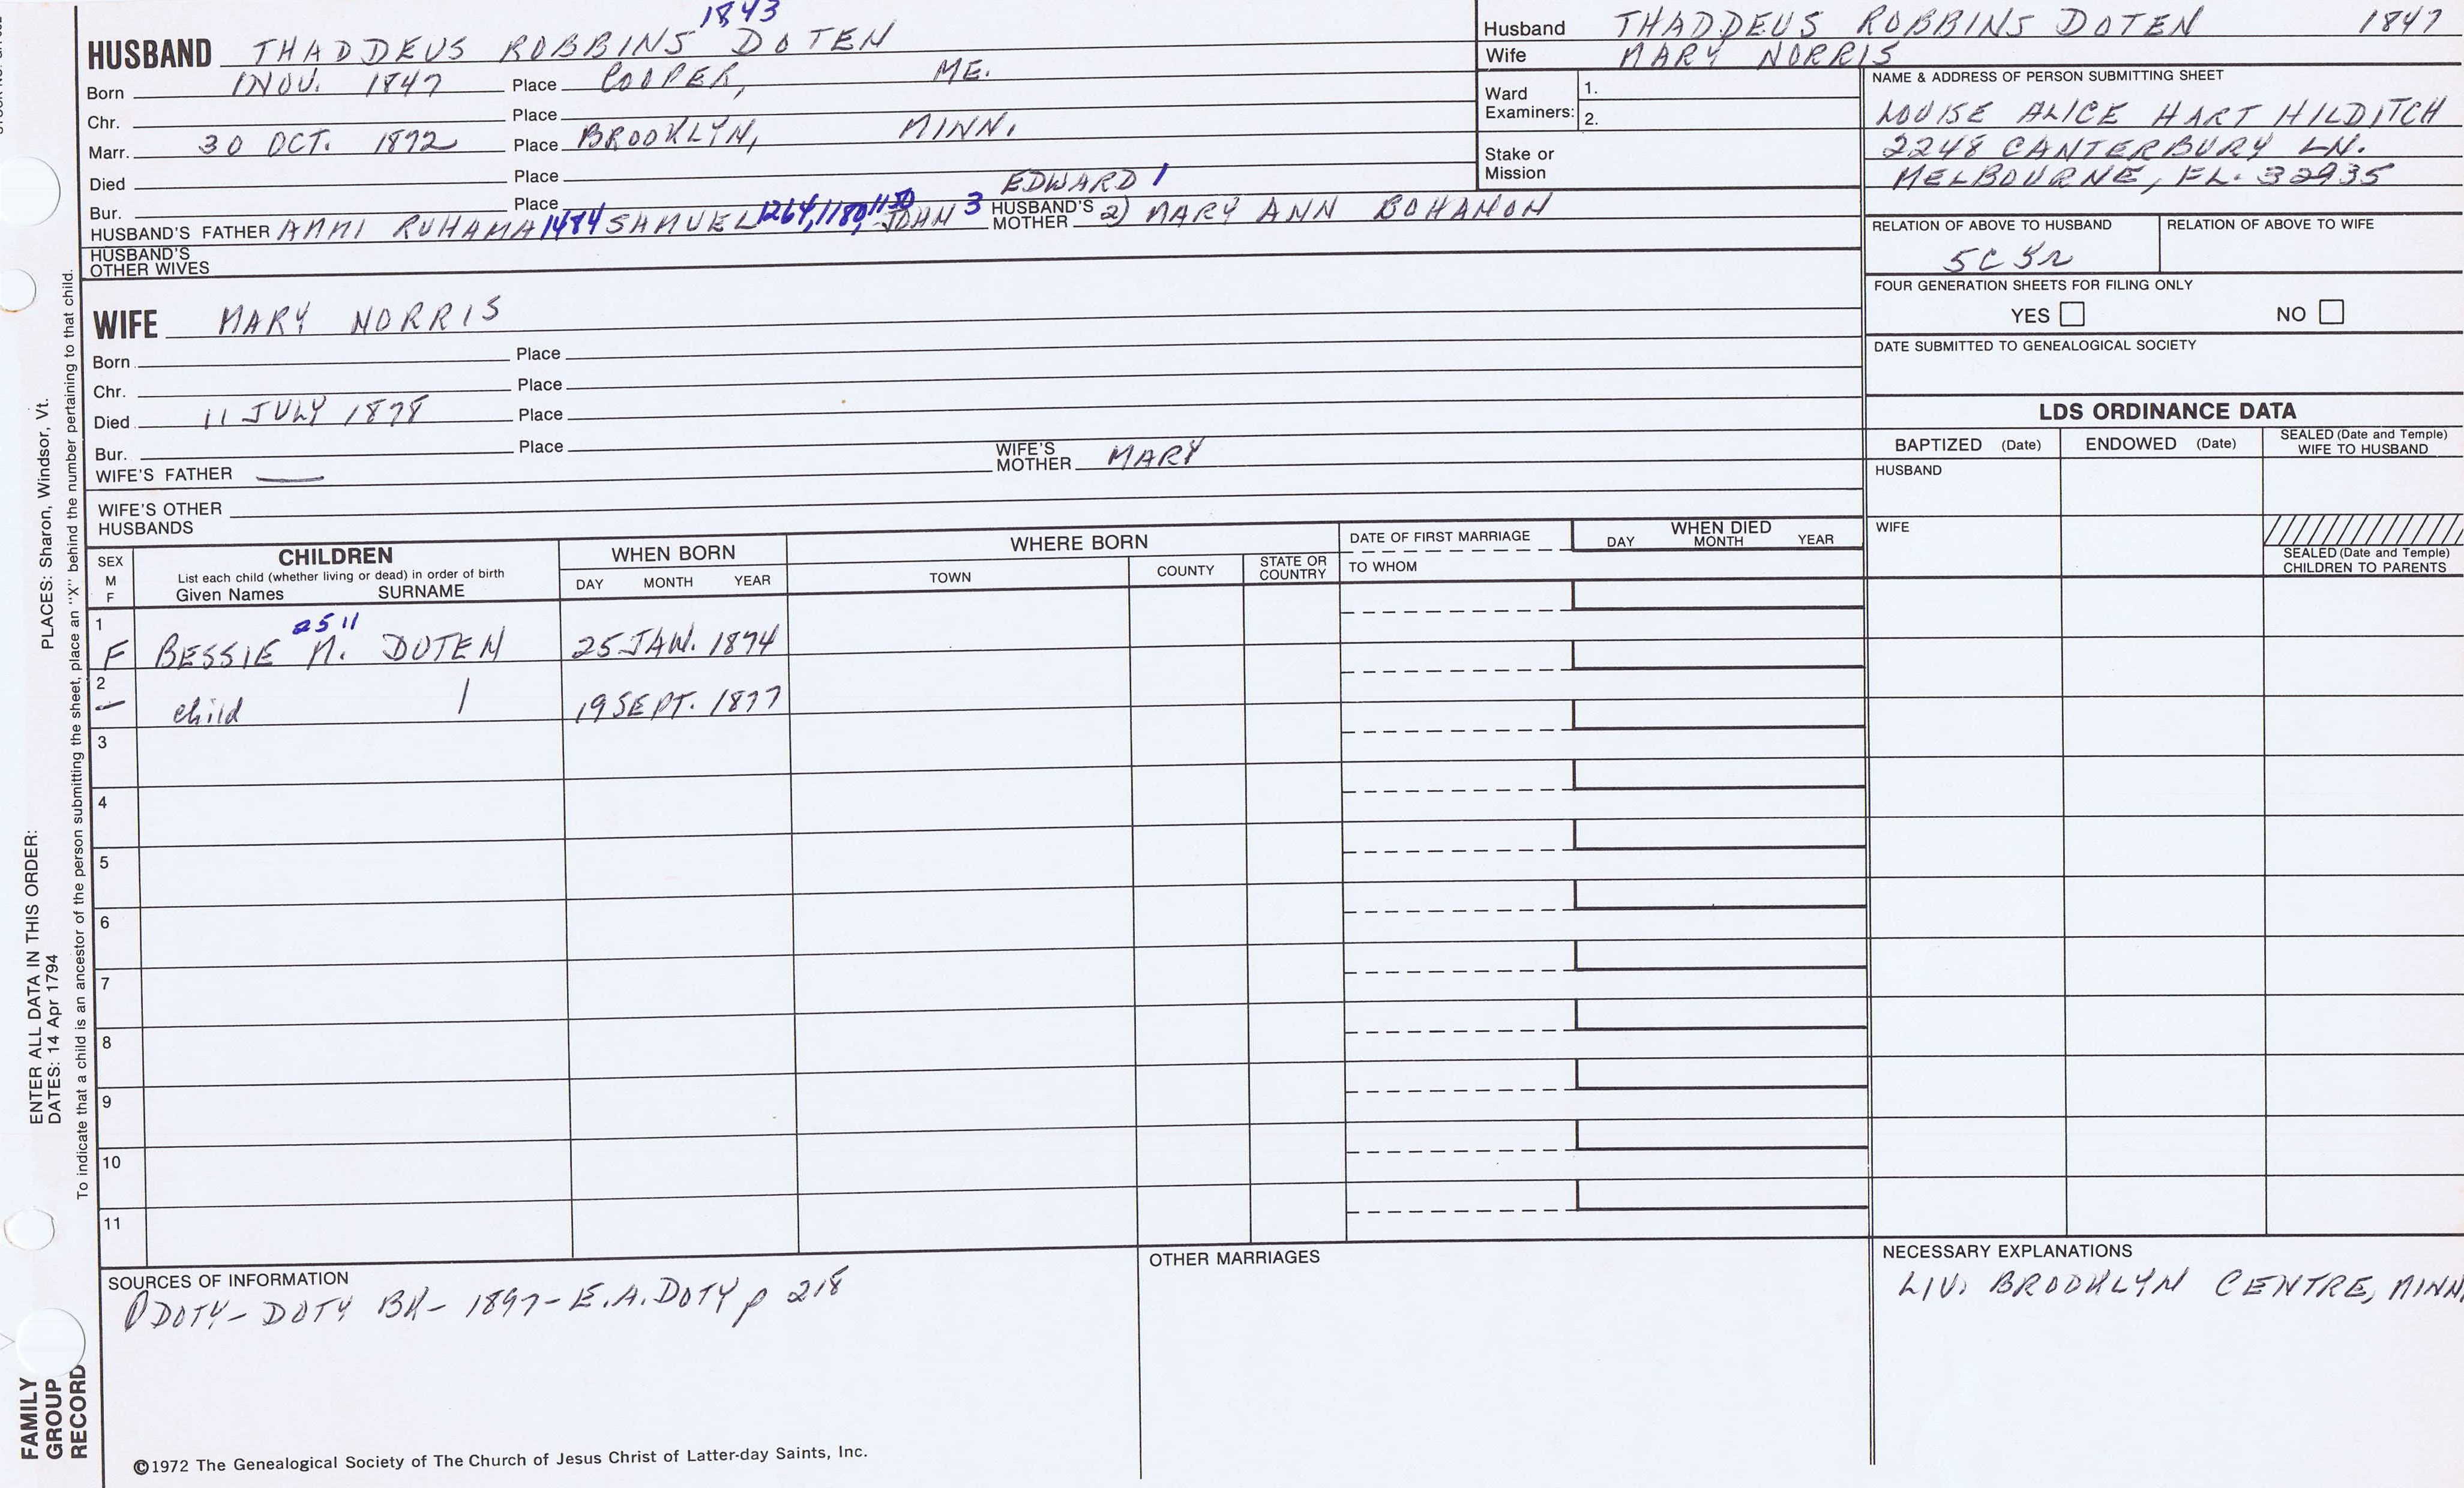 1843
HUSBAND THADDEUS ROBBINS DOTEN
Born 1 NOV. 1847 Place COOPER, ME.
Chr. Place
Marr. 30 OCT. 1872 Place BROOKLYN, MINN.
Died Place
Bur. Place EDWARD 1
HUSBAND'S FATHER AMMI RUHAMA 1484 SAMUEL 1264, 1180, 1150 JOHN 3 HUSBAND'S MOTHER 2) MARY ANN BOHANON
HUSBAND'S OTHER WIVES
WIFE MARY NORRIS
Born Place
Chr. Place
Died 11 JULY 1878 Place
Bur. Place
WIFE'S FATHER — WIFE'S MOTHER MARY
WIFE'S OTHER HUSBANDS
Husband THADDEUS ROBBINS DOTEN 1847
Wife MARY NORRIS
Ward Examiners: 1.
2.
Stake or Mission
NAME & ADDRESS OF PERSON SUBMITTING SHEET
LOUISE ALICE HART HILDITCH
2248 CANTERBURY LN.
MELBOURNE, FL. 32935
RELATION OF ABOVE TO HUSBAND RELATION OF ABOVE TO WIFE
5C 5r
FOUR GENERATION SHEETS FOR FILING ONLY
YES NO
DATE SUBMITTED TO GENEALOGICAL SOCIETY
LDS ORDINANCE DATA
BAPTIZED (Date) ENDOWED (Date) SEALED (Date and Temple) WIFE TO HUSBAND
HUSBAND
WIFE
SEALED (Date and Temple) CHILDREN TO PARENTS
SEX M F CHILDREN WHEN BORN WHERE BORN DATE OF FIRST MARRIAGE WHEN DIED
List each child (whether living or dead) in order of birth
Given Names SURNAME DAY MONTH YEAR TOWN COUNTY STATE OR COUNTRY TO WHOM DAY MONTH YEAR
2511
1 F BESSIE M. DOTEN 25 JAN. 1874
2 — child | 19 SEPT. 1877
3
4
5
6
7
8
9
10
11
SOURCES OF INFORMATION
DOTY-DOTY BK-1897-E.A.DOTY p 218
OTHER MARRIAGES
NECESSARY EXPLANATIONS
LIV. BROOKLYN CENTRE, MINN.
©1972 The Genealogical Society of The Church of Jesus Christ of Latter-day Saints, Inc.
FAMILY
GROUP
RECORD
ENTER ALL DATA IN THIS ORDER:
DATES: 14 Apr 1794
PLACES: Sharon, Windsor, Vt.
To indicate that a child is an ancestor of the person submitting the sheet, place an "X" behind the number pertaining to that child.